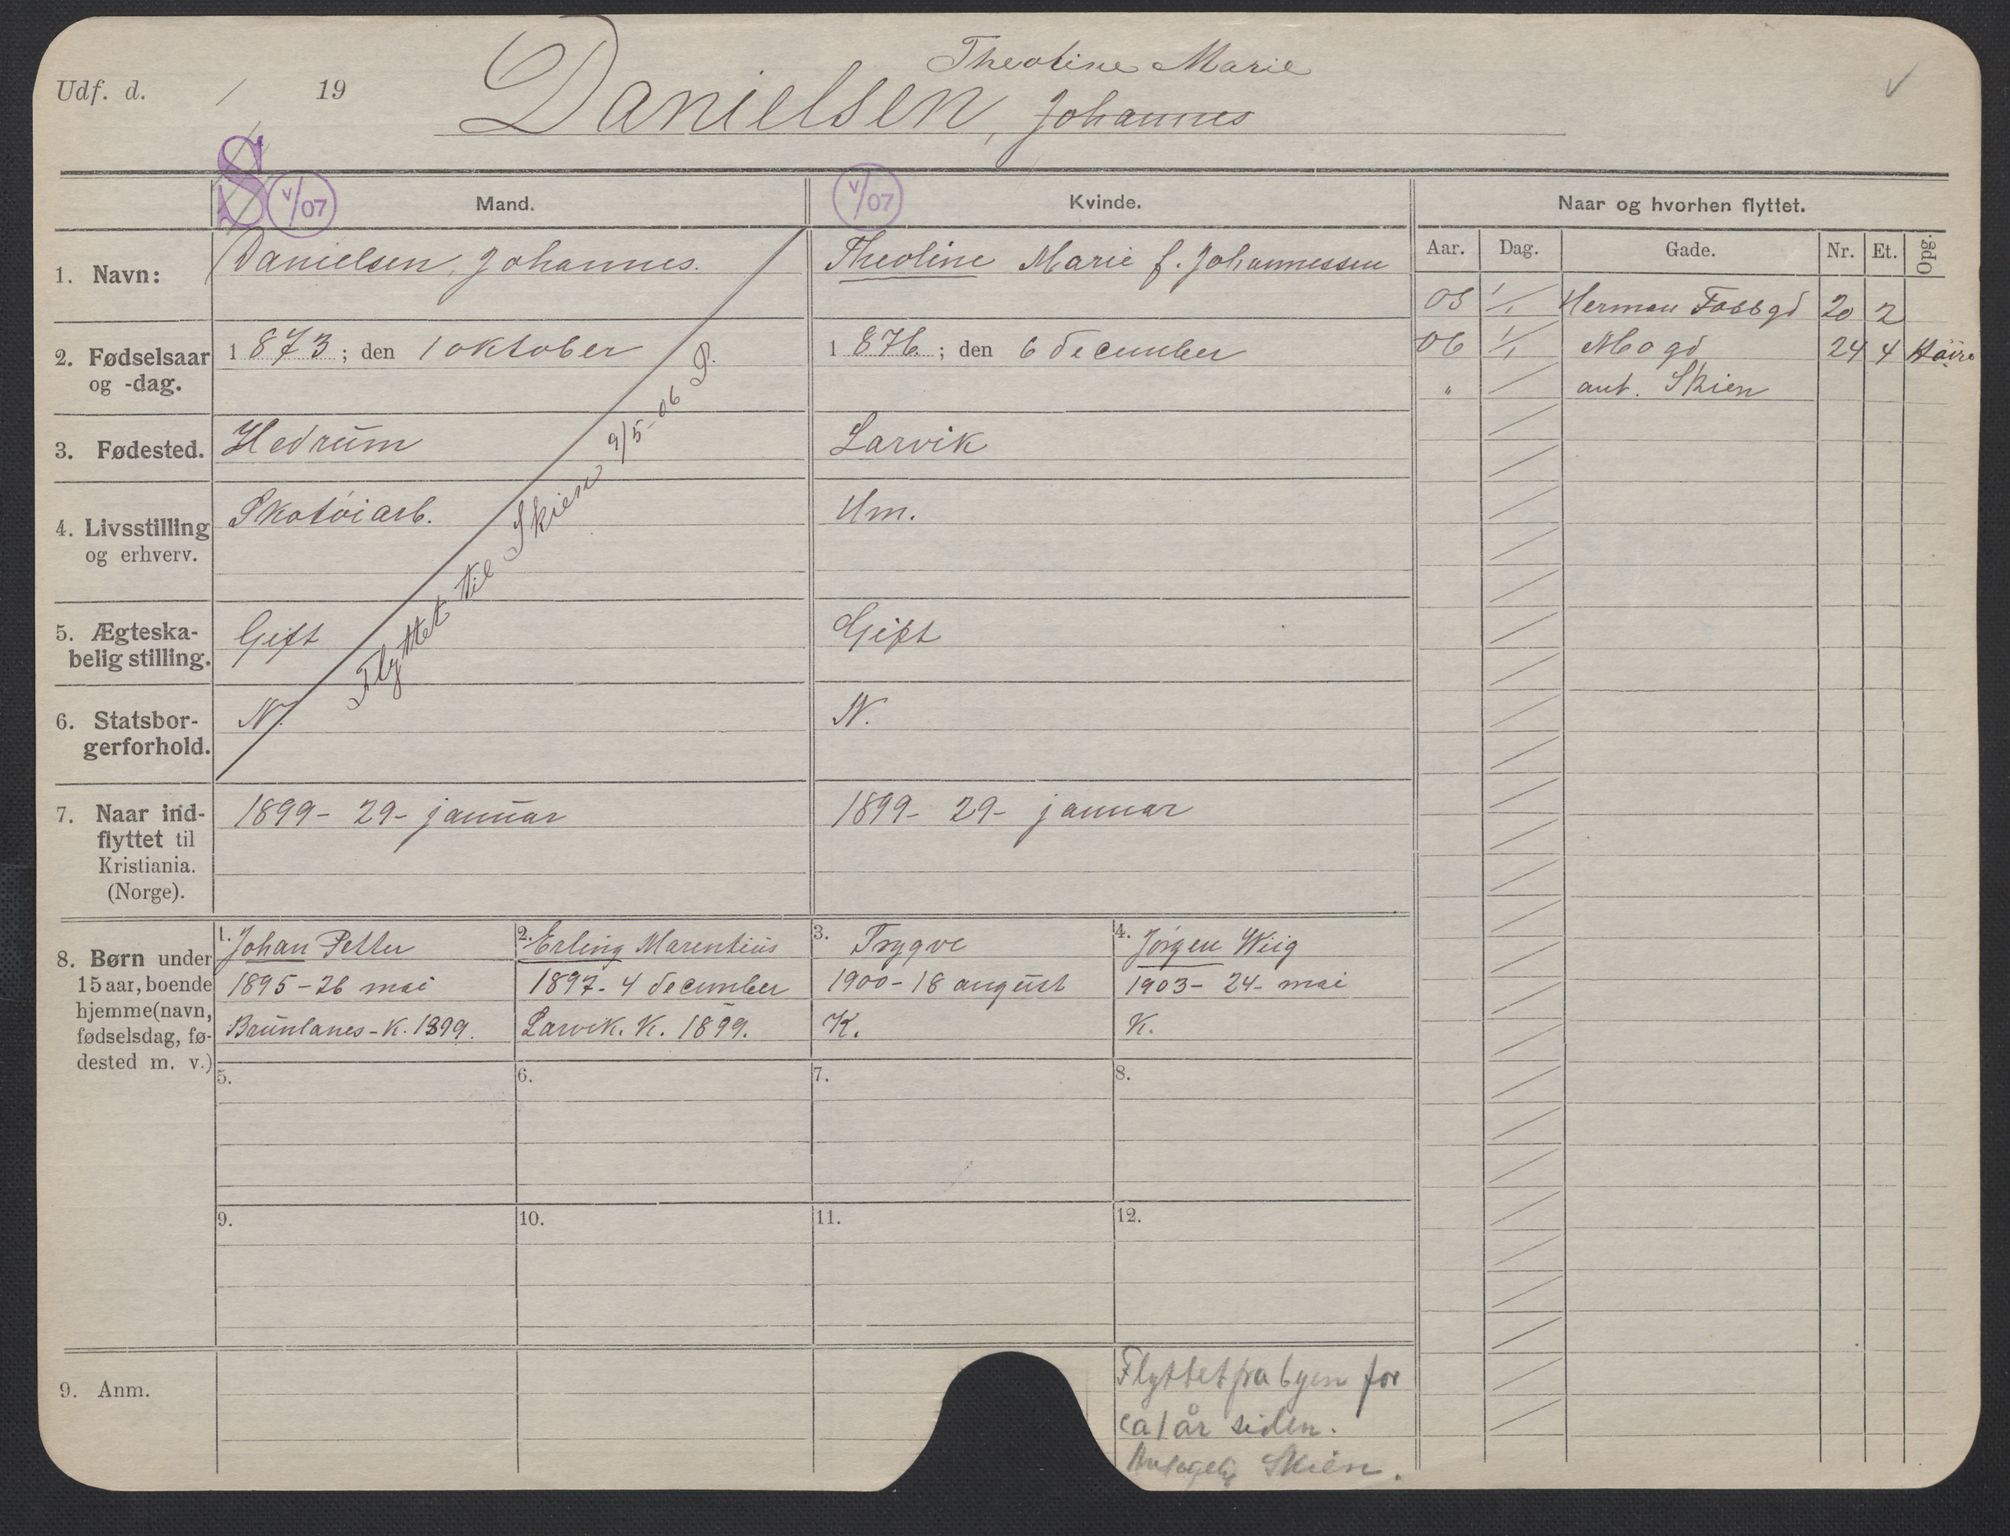 Udf. d. / 19
Theoline Marie
Danielsen, Johannes
S V/07 Mand. V/07 Kvinde. Naar og hvorhen flyttet.
Aar. Dag. Gade. Nr. Et. Opg.
1. Navn: Danielsen, Johannes. Theoline Marie f. Johannessen
05 1/1 Herman Fossgd 20 2
2. Fødselsaar 1873; den 1 oktober 1876; den 6 december
og -dag.
06 1/1 Mogd 24 4 Høire
" / ant. Skien
3. Fødested. Hedrum Larvik
4. Livsstilling Skotøiarb. Hm.
og erhverv.
5. Ægteska- Gift Gift
belig stilling.
6. Statsbor- N. N.
gerforhold.
Flyttet til Skien 9/5-06 P.
7. Naar ind- 1899 - 29 - januar 1899 - 29 - januar
flyttet til
Kristiania.
(Norge).
8. Børn under
15 aar, boende
hjemme (navn,
fødselsdag, fø-
dested m. v.)
1. Johan Petter
1895 - 26 mai
Brunlanes - K. 1899.
2. Erling Marentius
1897 - 4 december
Larvik. K. 1899.
3. Trygve
1900 - 18 august
K.
4. Jørgen Wiig
1903 - 24 - mai
K.
5. 6. 7. 8.
9. 10. 11. 12.
9. Anm.
Flyttet fra byen for
ca 1 år siden.
Antagelig Skien.